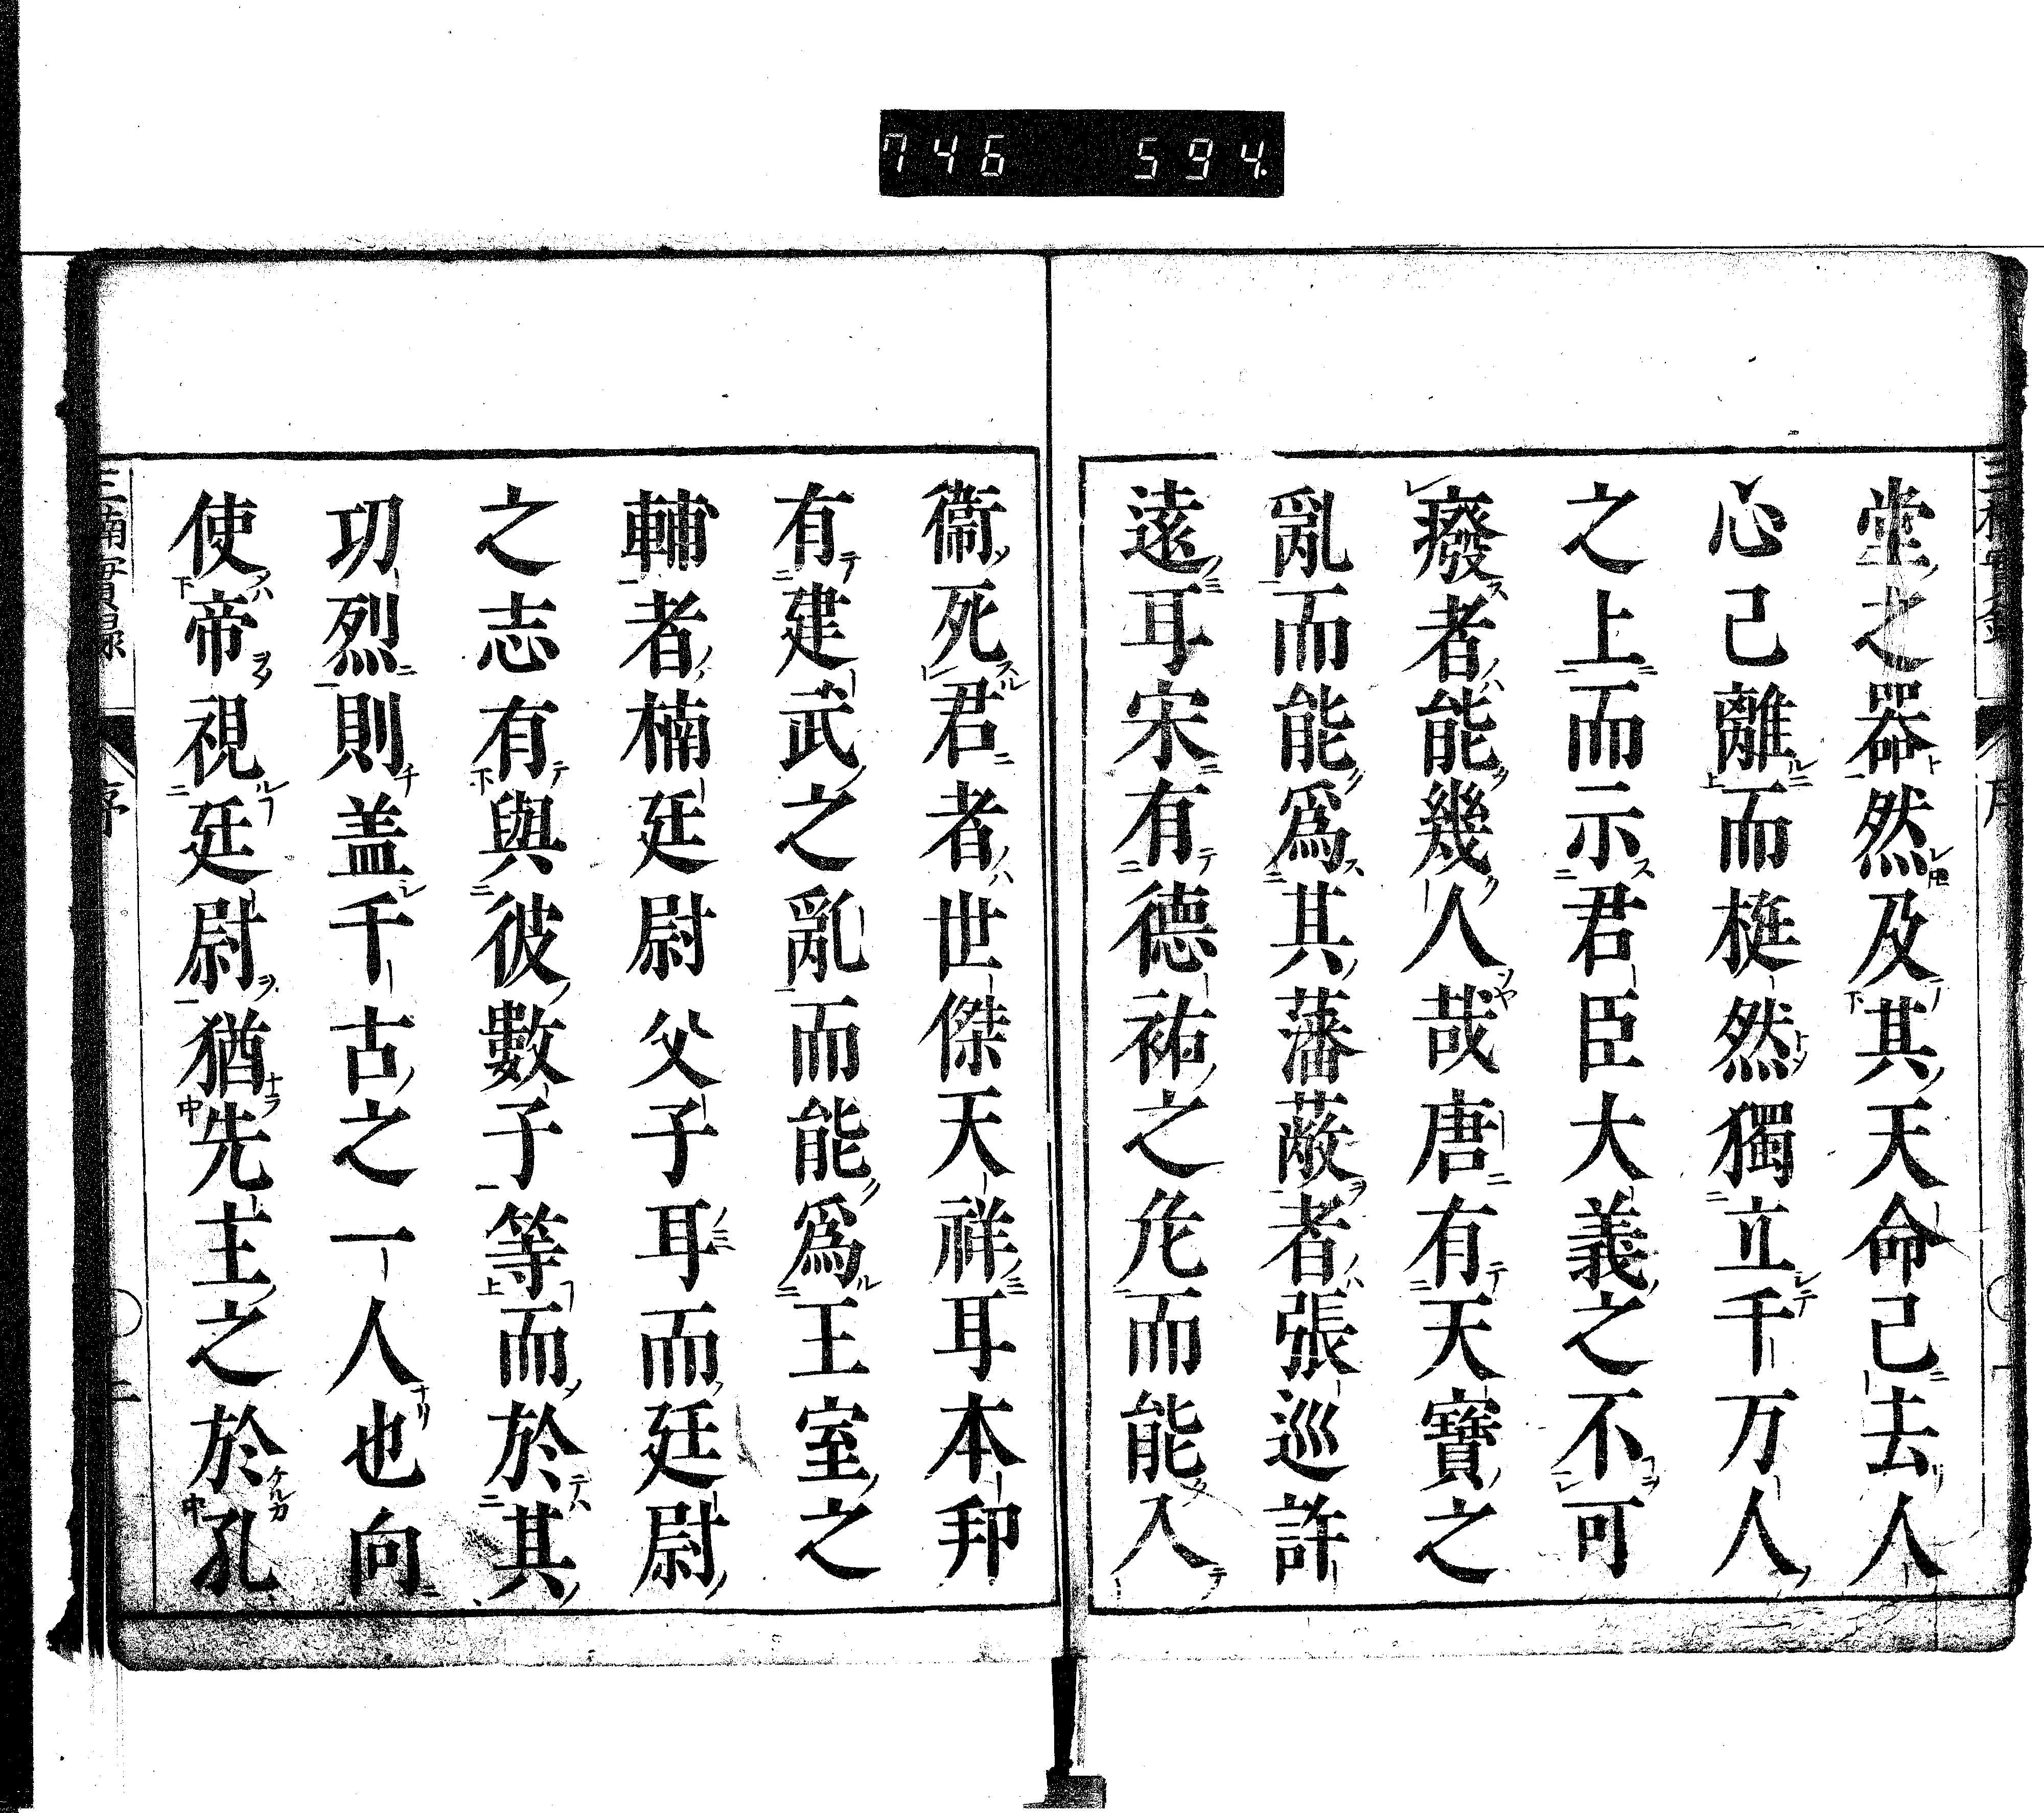 746 594.
堂之器然及其天命已去人
心已離而梃然獨立千万人
之上而示君臣大義之不可
癈者能幾人哉唐有天寶之
亂而能爲其藩蔽者張巡許
遠耳宋有德祐之危而能入
衞死君者世傑天祥耳本邦
有建武之亂而能爲王室之
輔者楠廷尉父子耳而廷尉
之志有與彼數子等而於其
功烈則盖千古之一人也向
使帝視廷尉猶先主之於孔
三楠實録
序
二